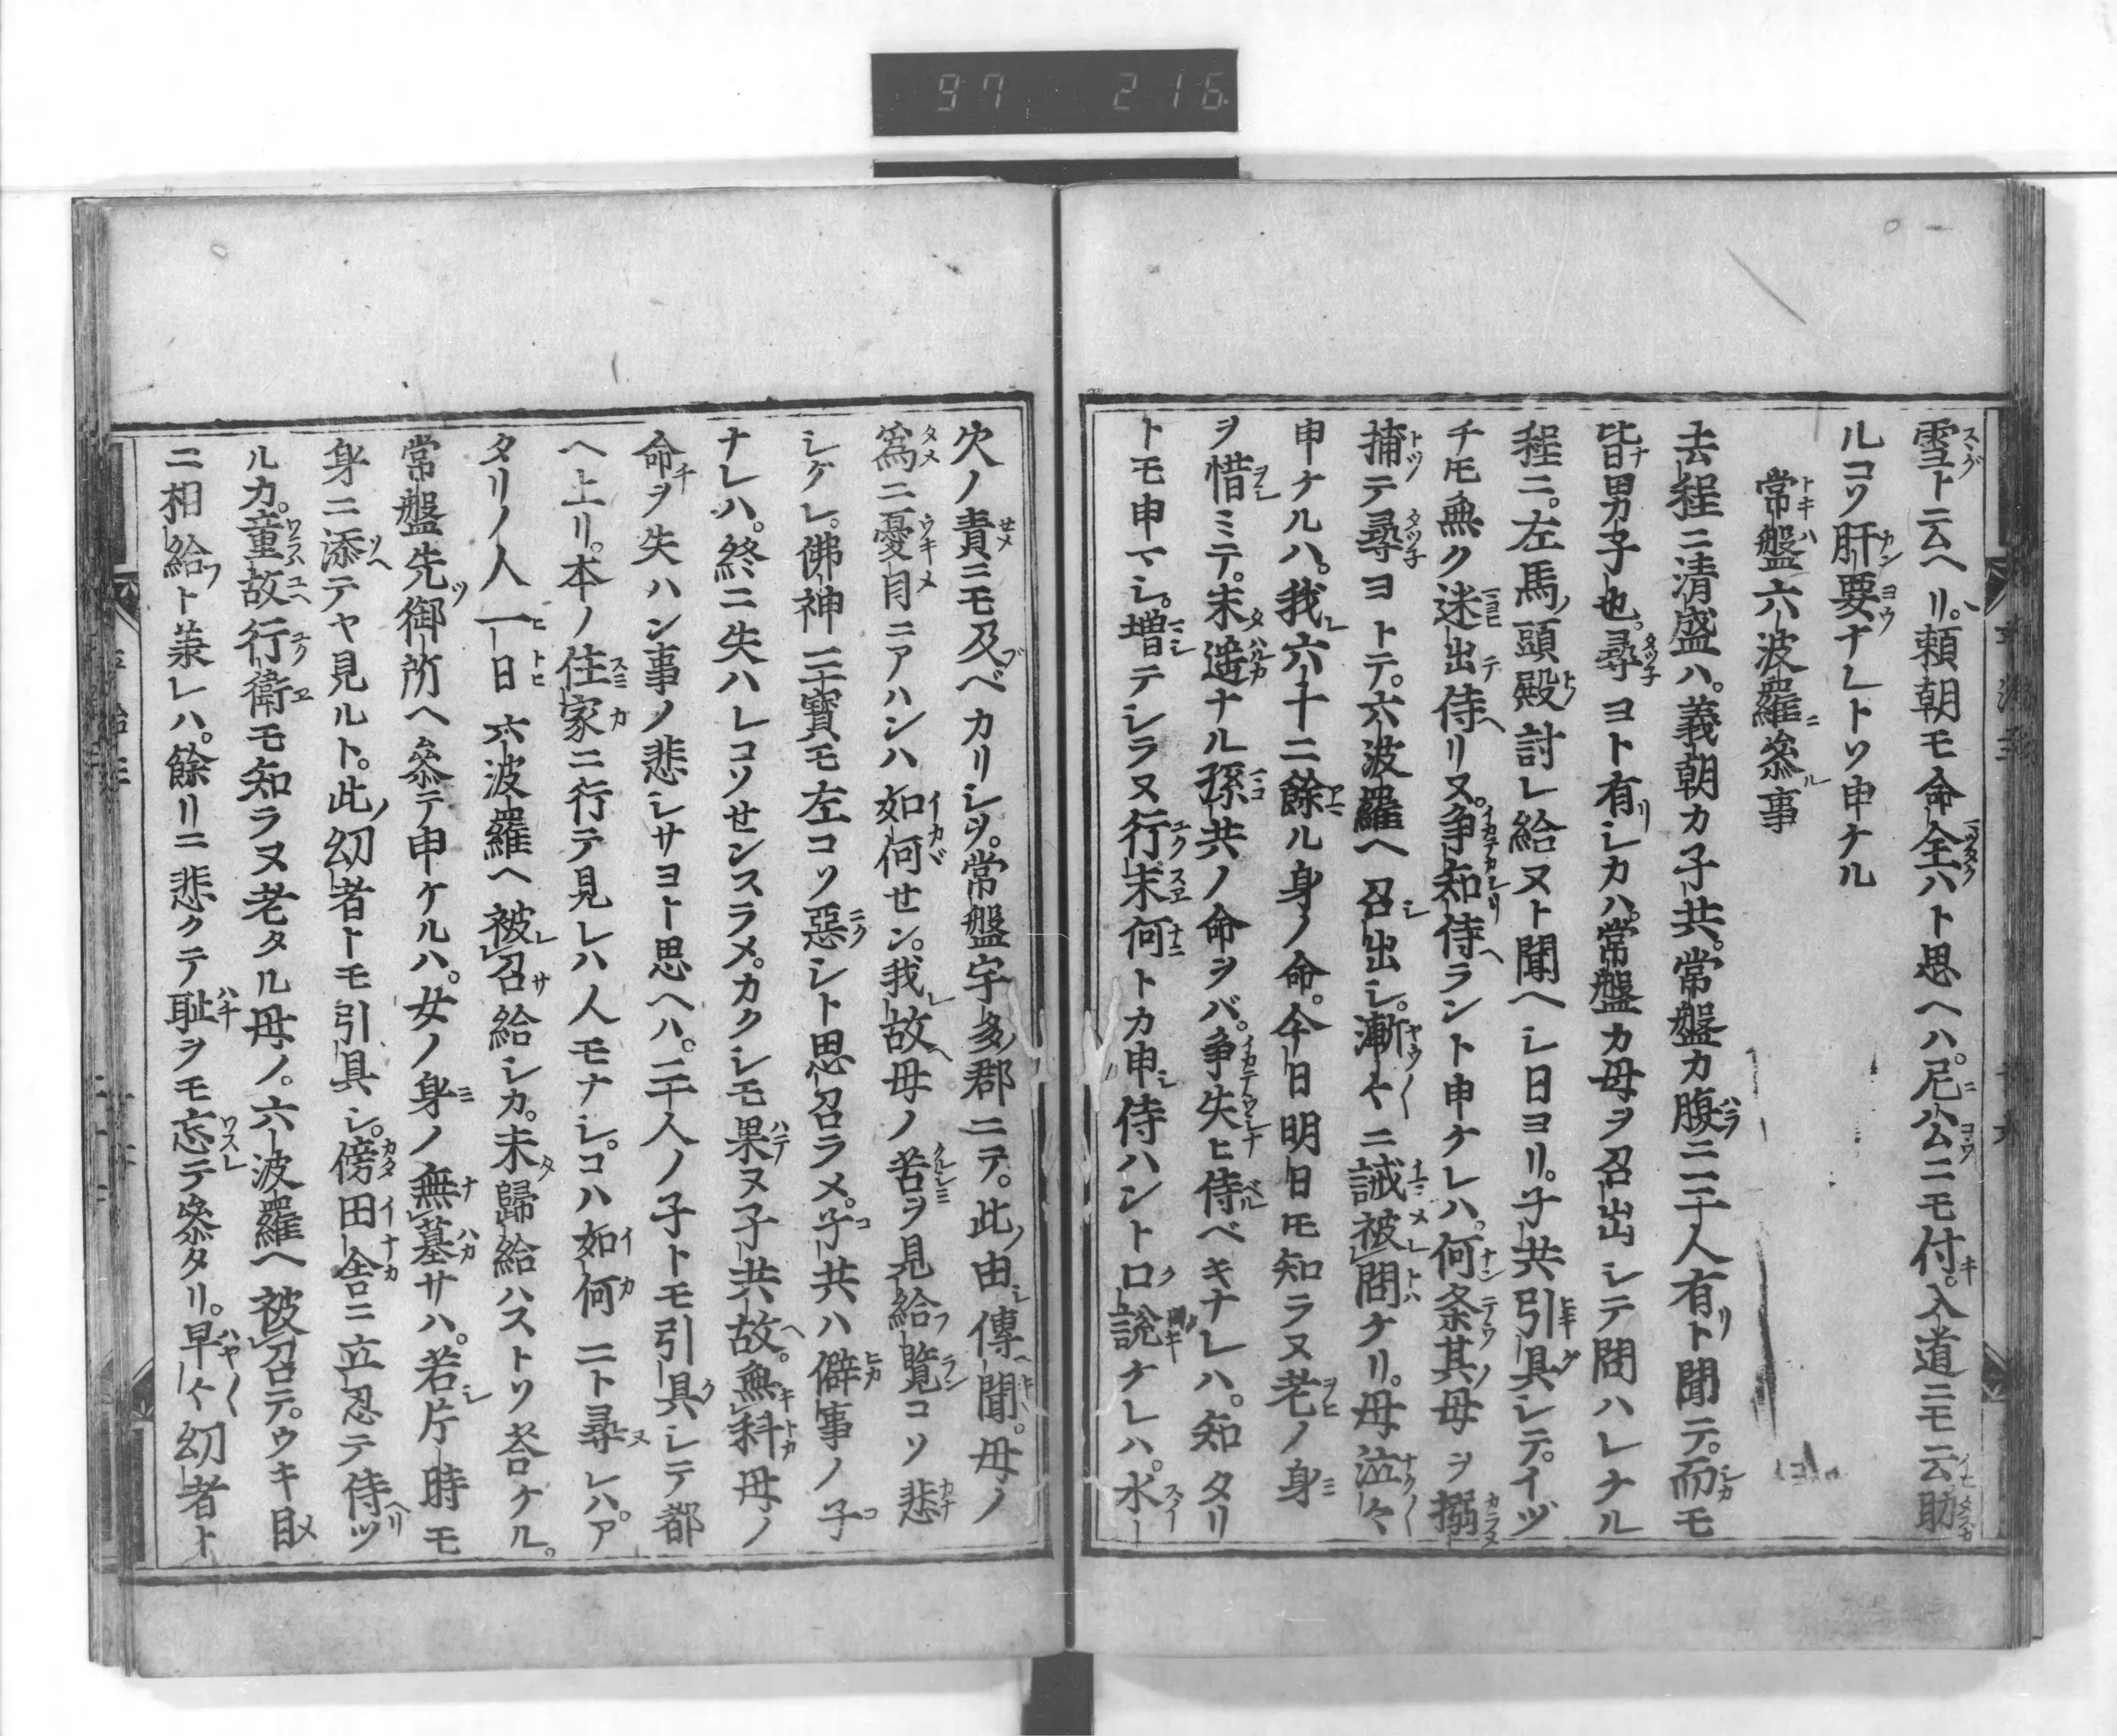 97 216
雪ト云ヘリ。頼朝モ命全ハト思ヘハ。尼公ニモ付。入道ニモ云助
ルコソ肝要ナレトソ申ケル
常盤六波羅参事
去程ニ清盛ハ。義朝カ子共。常盤カ腹ニ三人有ト聞テ。而モ
皆男子也。尋ヨト有シカハ。常盤カ母ヲ召出シテ問ハレナル
程ニ。左馬頭殿討レ給ヌト聞ヘシ日ヨリ。子共引具シテ。イヅ
チモ無ク迷出侍リヌ。争知侍ラント申ケレハ。何条其母ヲ搦
捕テ尋ヨトテ。六波羅ヘ召出シ。漸々ニ誡被問ケリ。母泣々
申ケルハ。我六十ニ餘ル身ノ命。今日明日モ知ラヌ老ノ身
ヲ惜ミテ。末遥ナル孫共ノ命ヲバ。争失ヒ侍ベキナレハ。知タリ
トモ申マシ。増テシラヌ行末何トカ申侍ハントロ説ナレハ。水
穴ノ責ニモ及ベカリシヲ。常盤宇多郡ニテ。此由傳聞。母ノ
為ニ憂目ニアハンハ如何セン。我故母ノ苦ヲ見給覧コソ悲
シケレ。佛神三寶モ左コソ惡シト思召ラメ。子共ハ僻事ノ子
ナレハ。終ニ失ハレコソせンスラメ。カクレモ果ヌ子共故。無科母ノ
命ヲ失ハン事ノ悲シサヨト思ヘハ。三人ノ子トモ引具シテ都
ヘ上リ。本ノ住家ニ行テ見レハ人モナシ。コハ如何ニト尋レハ。ア
タリノ人一日六波羅ヘ被召給シカ。未歸給ハストソ荅ケル。
常盤先御所ヘ参テ申ケルハ。女ノ身ノ無墓サハ。若片時モ
身ニ添テヤ見ルト。此幼者トモ引具シ。傍田舎ニ立忍テ侍ツ
ルカ。童故行衛モ知ラヌ老タル母ノ。六波羅ヘ被召テ。ウキ目
ニ相給ト兼レハ。餘リニ悲クテ耻ヲモ忘テ参タリ。早々幼者ト